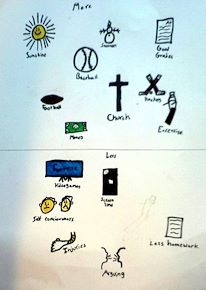 More
Sunshine
Summer
Good
Grades
Baseball
Football
Church
Money
Exercise
Less
Videogames
Screen
Time
Self consciousness
Injuries
Less homework
Arguing